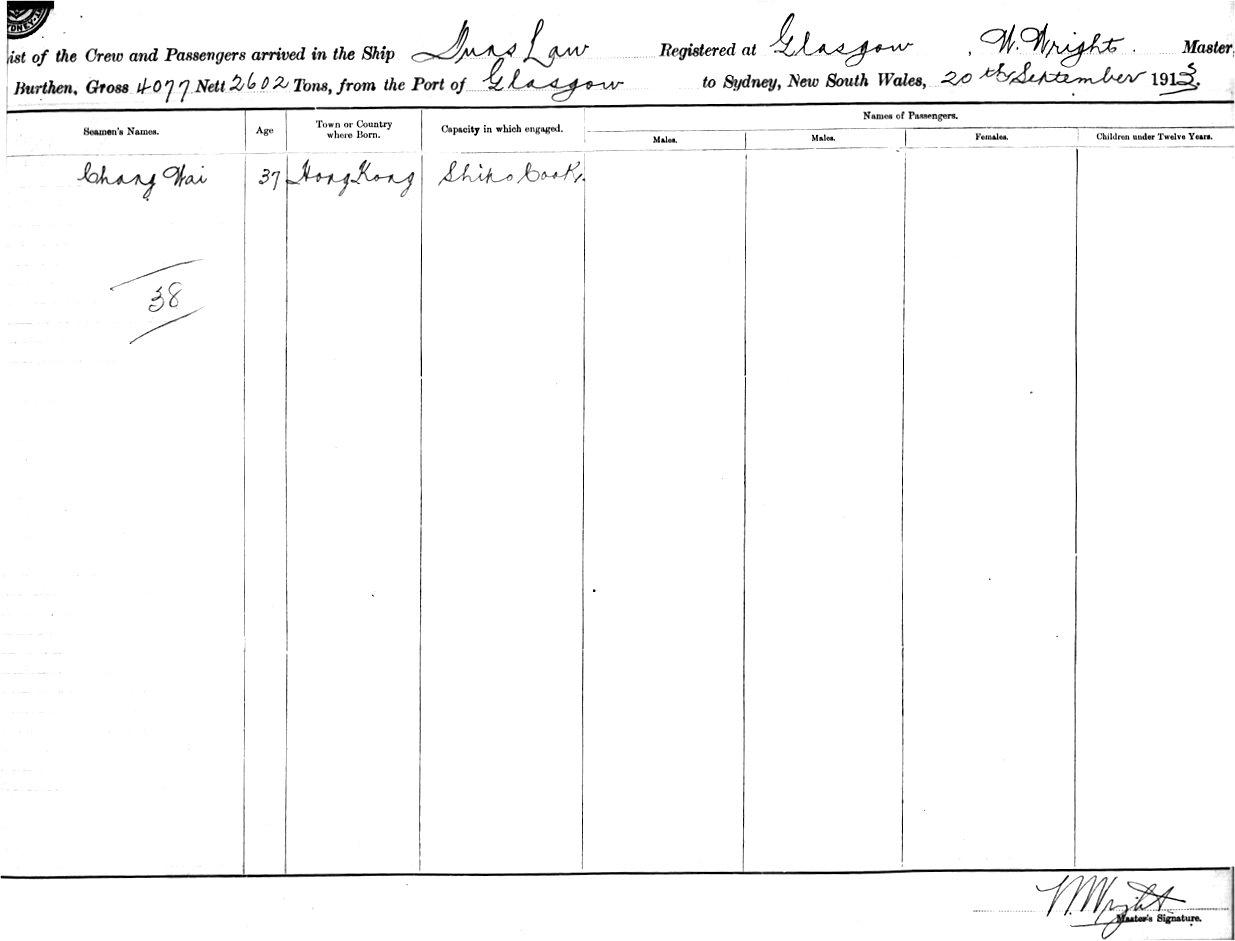 SYDNEY
ist of the Crew and Passengers arrived in the Ship Duns Law Registered at Glasgow, W. Wright. Master,
Burthen, Gross 4077 Nett 2602 Tons, from the Port of Glasgow to Sydney, New South Wales, 20th September 1913.
Names of Passengers.
Seamen's Names. Age Town or Country where Born. Capacity in which engaged. Males. Males. Females. Children under Twelve Years.
Chang Wai 37 Hong Kong Ships Cook.
38
W. Wright
Master's Signature.